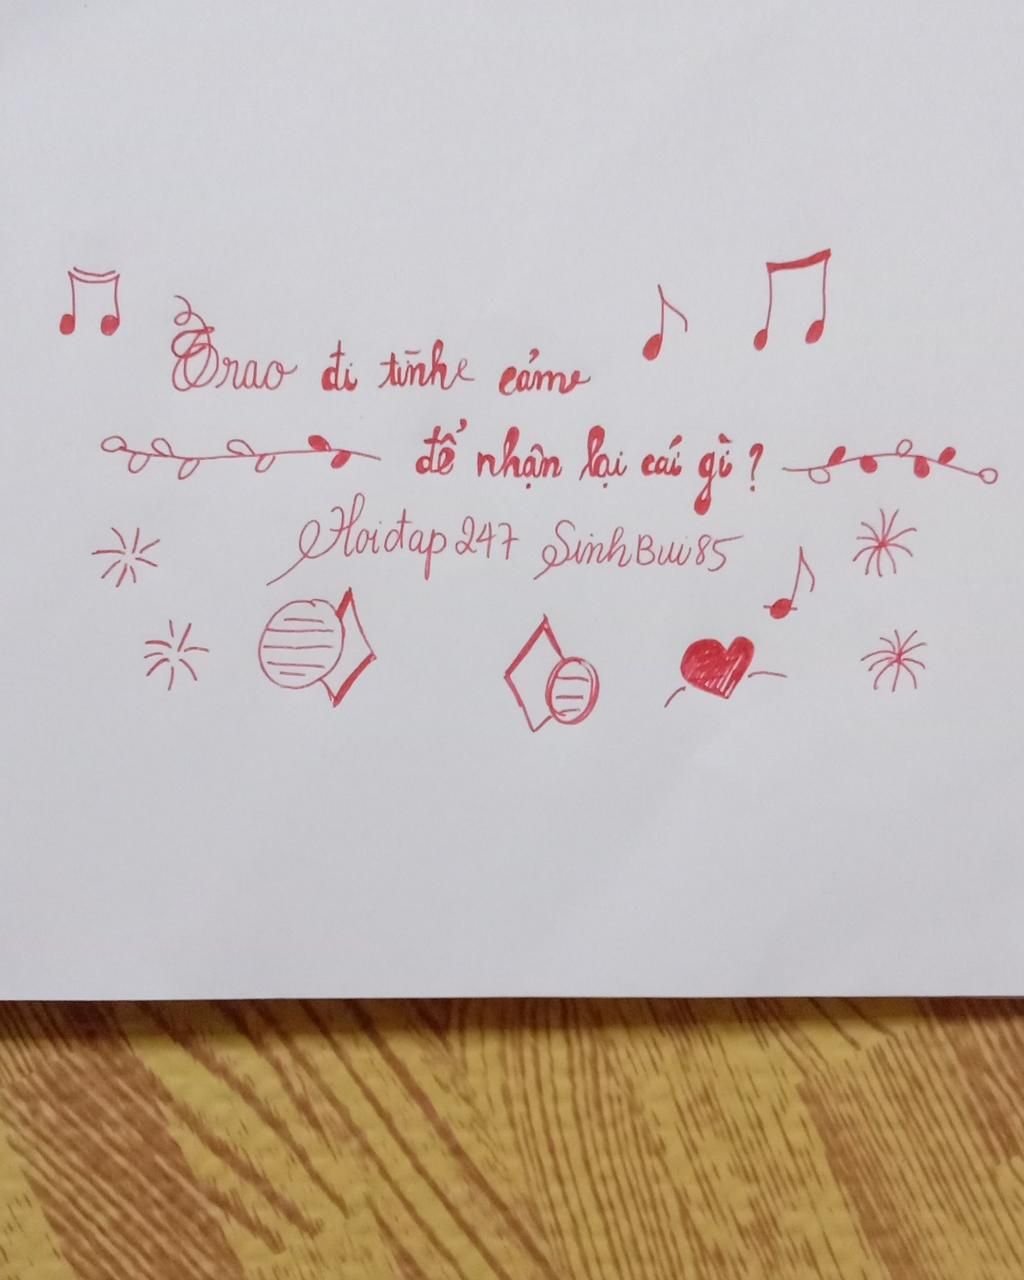 Trao đi tình cảm
để nhận lại cái gì ?
Hoidap247 SinhBui85